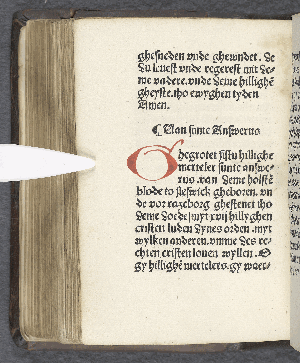 ghesneden vnde ghewndet. De
du leuest vnde regerest mit de-
me vadere. vnde deme hillighē
gheyste. tho ewyghen tyden
Amen.
¶ Van sunte Answerus
O begrotet sistu hillighe
merteler sunte answe-
rus. van deme holstē
blode to sleswick gheboren. vn
de vor razeborg ghestenet tho
deme dode / myt xvij hillyghen
cristen luden dynes orden. myt
wylken anderen. vmme des re-
chten cristen louen wyllen. O
gy hillighē mertelers. gy waer-